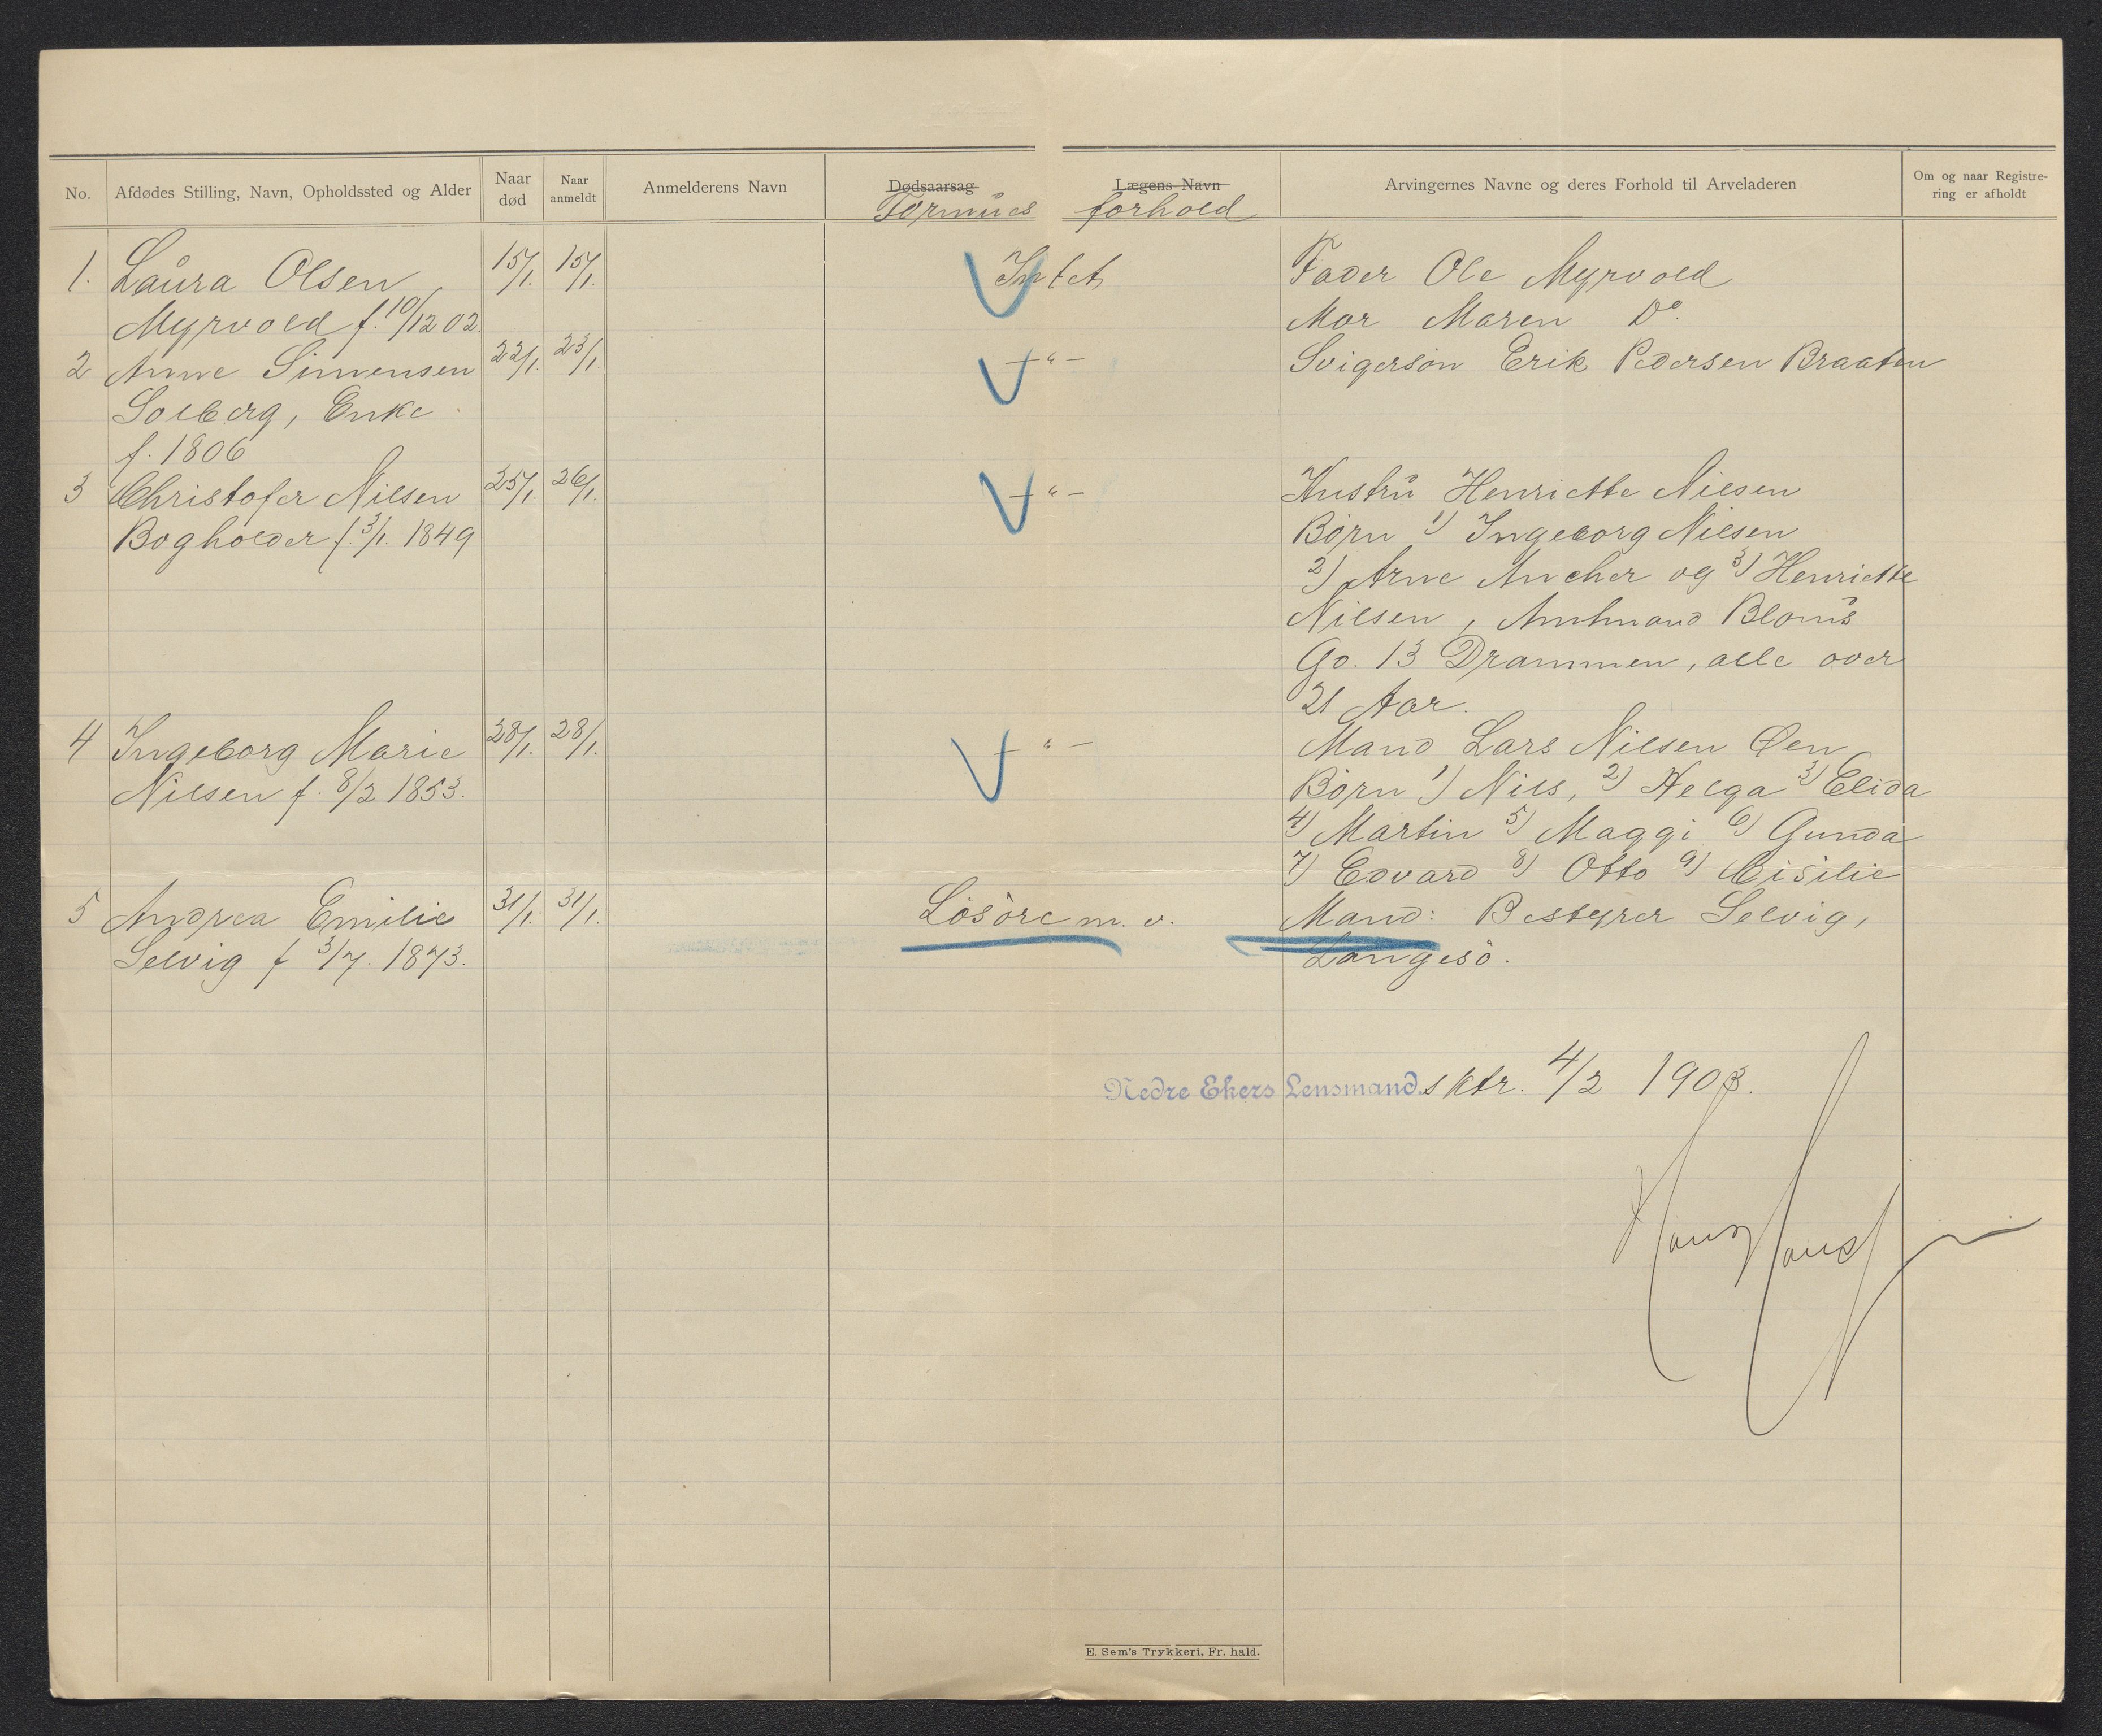 No.
Afdødes Stilling, Navn, Opholdssted og Alder
Naar død
Naar anmeldt
Anmelderens Navn
Dødsaarsag
Lægens Navn
Formues forhold
Arvingernes Navne og deres Forhold til Arveladeren
Om og naar Registre-
ring er afholdt
1. Laura Olsen 15/1. 15/1. Intet Fader Ole Myrvold
Myrvold f. 10/12 02. Mor Maren Do.
2 Anne Simensen 22/1. 23/1. -"- Svigersön Erik Pedersen Braaten
Solberg, Enke
f. 1806
3 Christofer Nilsen 25/1. 26/1. -"- Hustru Henriette Nilsen
Bogholder f. 3/1. 1849 Börn 1) Ingeborg Nilsen
2) Arne Ancher og 3) Henriette
Nilsen, Amtmand Bloms
Gd. 13 Drammen, alle over
21 Aar.
4 Ingeborg Marie 28/1. 28/1. -"- Mand Lars Nilsen Øen
Nilsen f. 8/2 1853. Börn 1) Nils, 2) Helga 3) Elida
4) Martin 5) Maggi 6) Gunda
7) Edvard 8) Otto 9) Cisilie
5 Andrea Emilie 31/1. 31/1. Lösöre m. v. Mand: Bestyrer Selvig,
Selvig f 3/7. 1873. Langesö.
Nedre Ekers Lensmandsktr. 4/2 1903.
E. Sem's Trykkeri, Fr. hald.